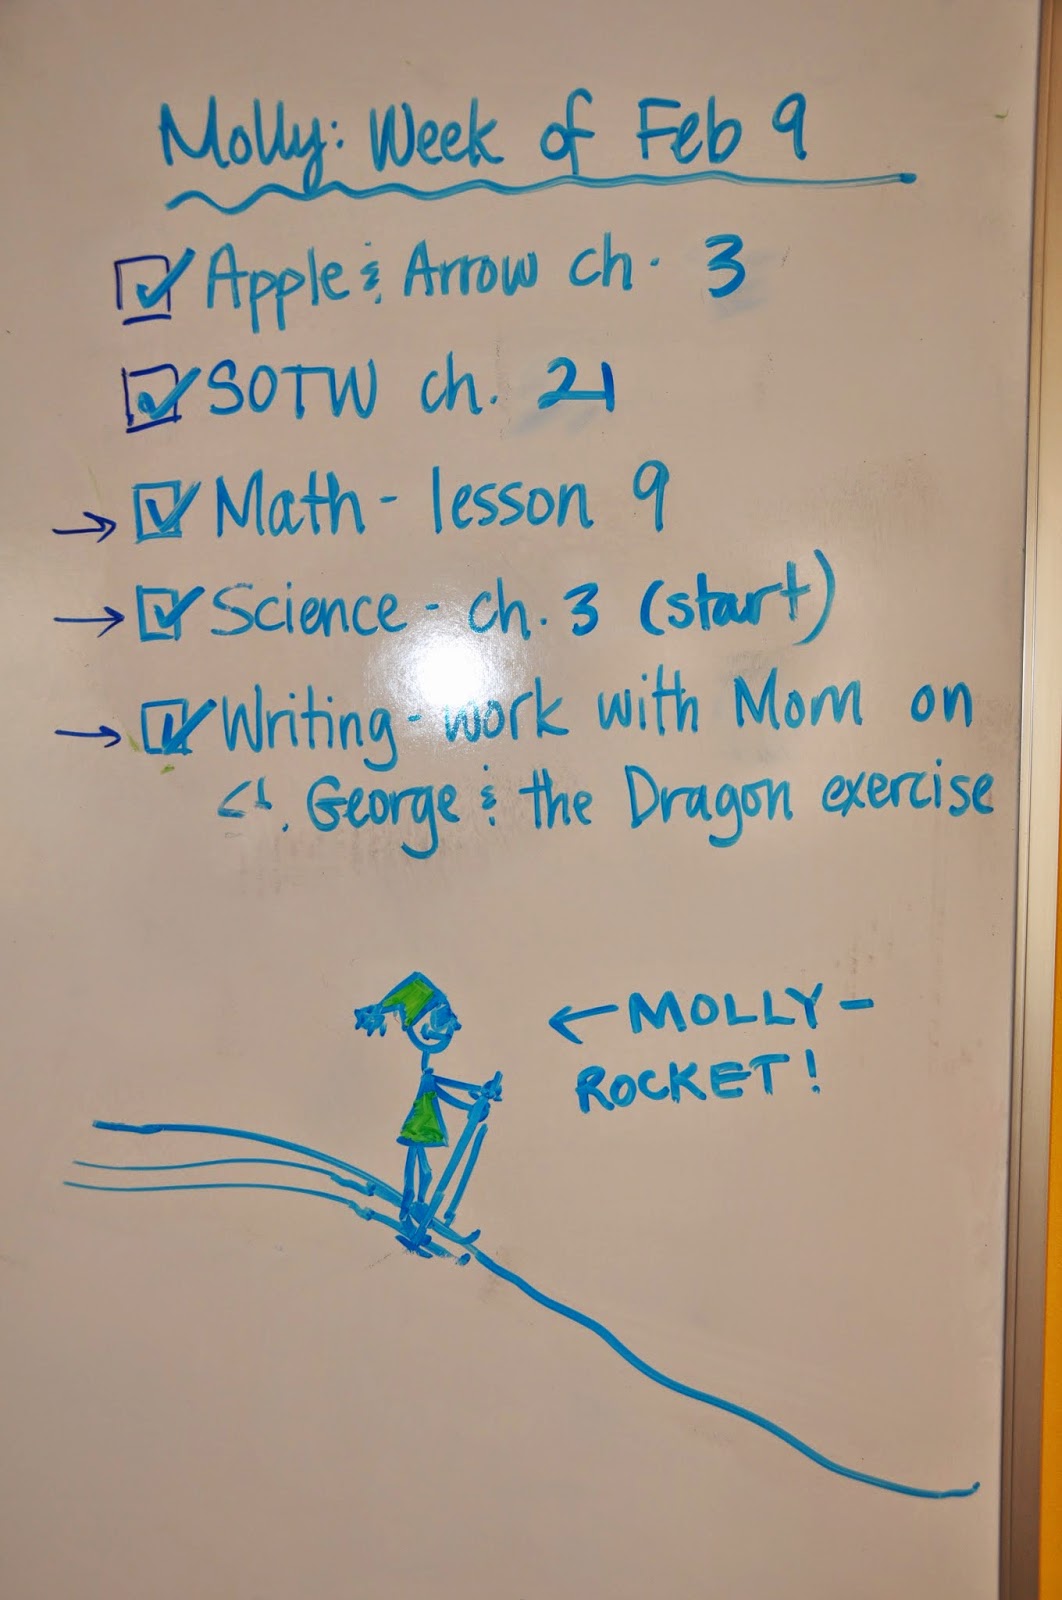 Molly: Week of Feb 9
Apple & Arrow ch. 3
SOTW ch. 21
→ Math - lesson 9
→ Science - ch. 3 (start)
→ Writing - work with Mom on
. George & the Dragon exercise
← MOLLY -
ROCKET!